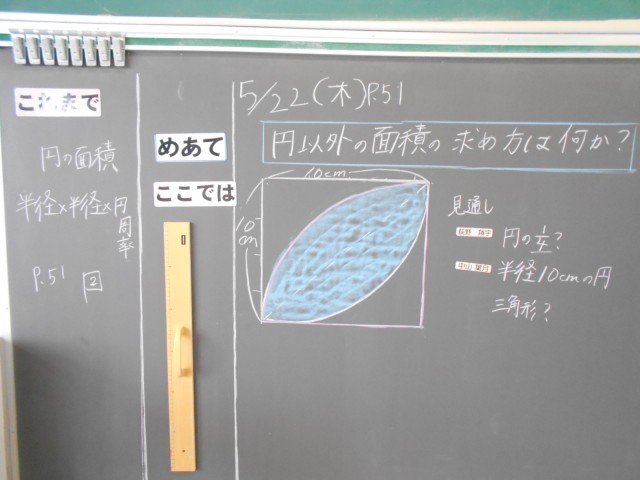 これまで
円の面積
半径×半径×円周率
P.51 2
めあて
ここでは
5/22(木)P.51
円以外の面積の求め方は何か?
10cm
10cm
見通し
円の1/4?
半径10cmの円
三角形?